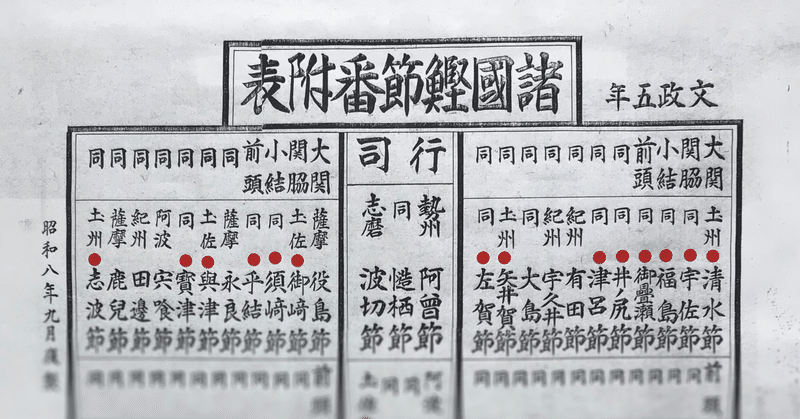 諸國鰹節番附表
文政五年
大関 土州 清水節
関脇 同 宇佐節
小結 同 福島節
前頭 同 御疊瀬節
同 同 井ノ尻節
同 同 津呂節
同 紀州 有田節
同 紀州 宇久井節
同 大島節
同 土州 矢井賀節
同 同 左賀節
行司
勢州 阿曽節
同 慥栖節
志磨 波切節
大関 薩摩 役島節
関脇 土佐 御﨑節
小結 同 須﨑節
前頭 同 乎結節
同 薩摩 永良節
同 土佐 與津節
同 同 寶津節
同 阿波 宍喰節
同 紀州 田邊節
同 薩摩 鹿兒節
同 土州 志波節
昭和八年九月